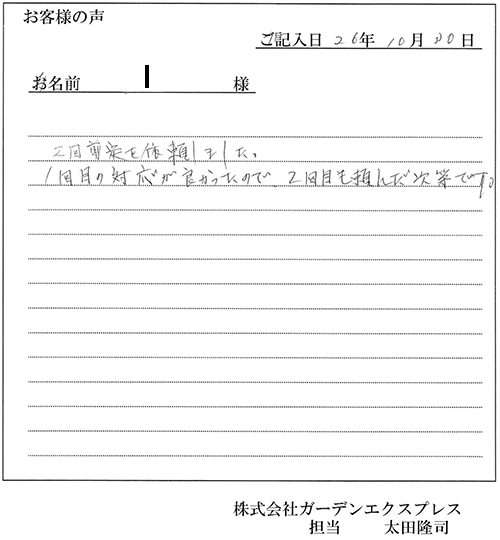 お客様の声
ご記入日 26年 10月 30日
お名前 様
2回剪定を依頼しました。
1回目の対応が良かったので、2回目も頼んだ次第です。
株式会社ガーデンエクスプレス
担当 太田隆司